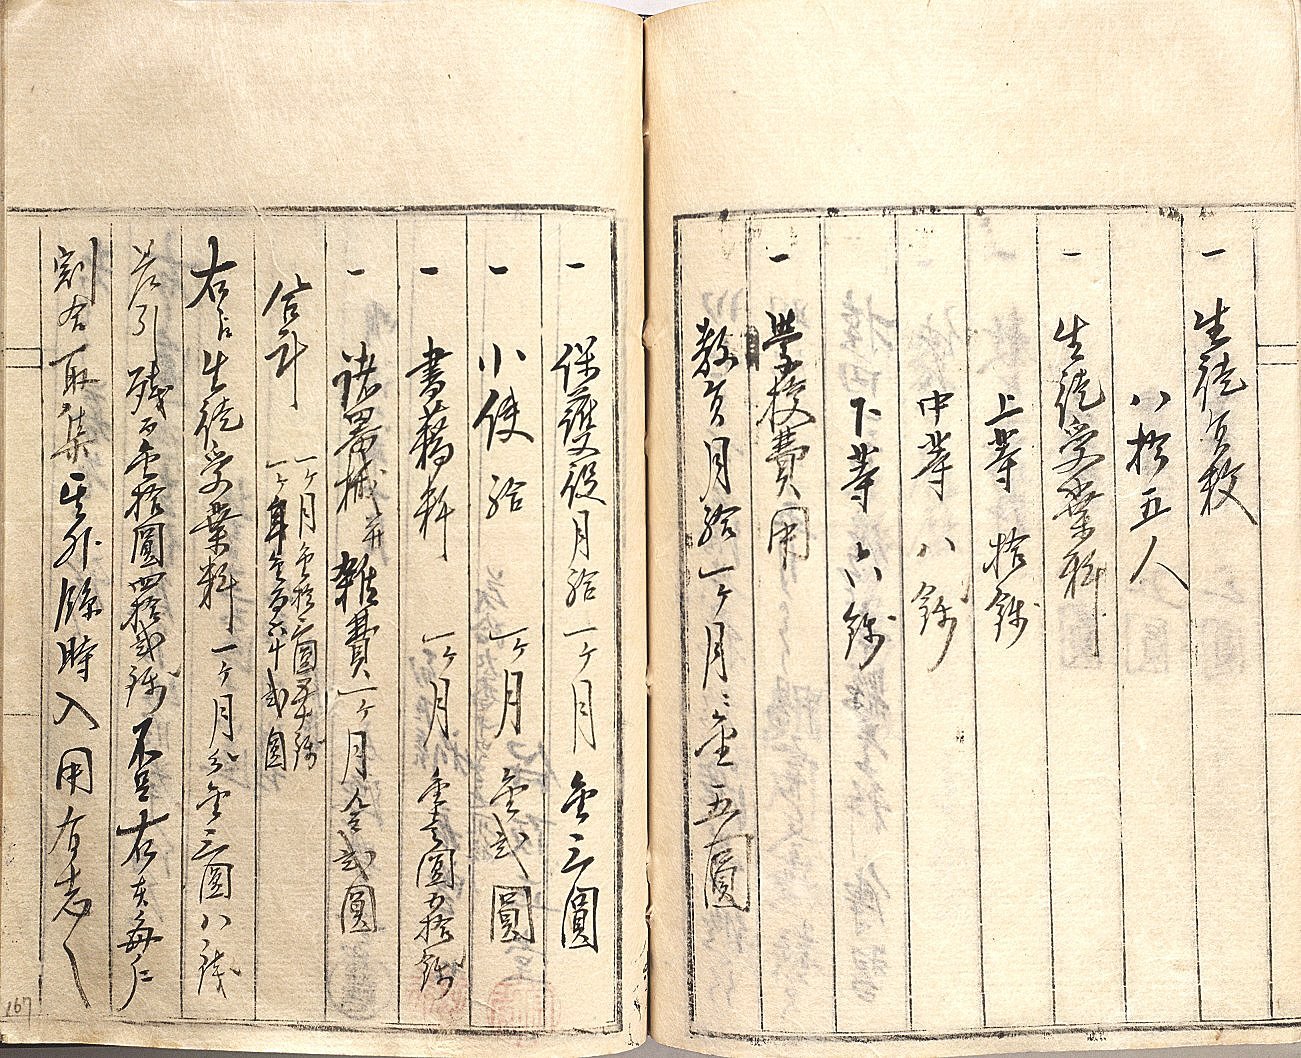 一 生徒員数
八拾五人
一 生徒受業料
上等 拾銭
中等 八銭
下等 六銭
一 学校費用
教員月給一ヶ月ニ金五圓
一 保護役月給一ヶ月金三圓
一 小使給 一ヶ月金弐圓
一 書籍料 一ヶ月金壱圓五拾銭
一 諸器械并雑費一ヶ月金弐圓
合計 一ヶ月金拾三圓五十銭
一ヶ年金百六十弐圓
右ハ生徒受業料一ヶ月分金三圓八銭
差引残而金拾圓四拾弐銭不足右者毎戸
割合取集其外臨時入用有志ノ
167